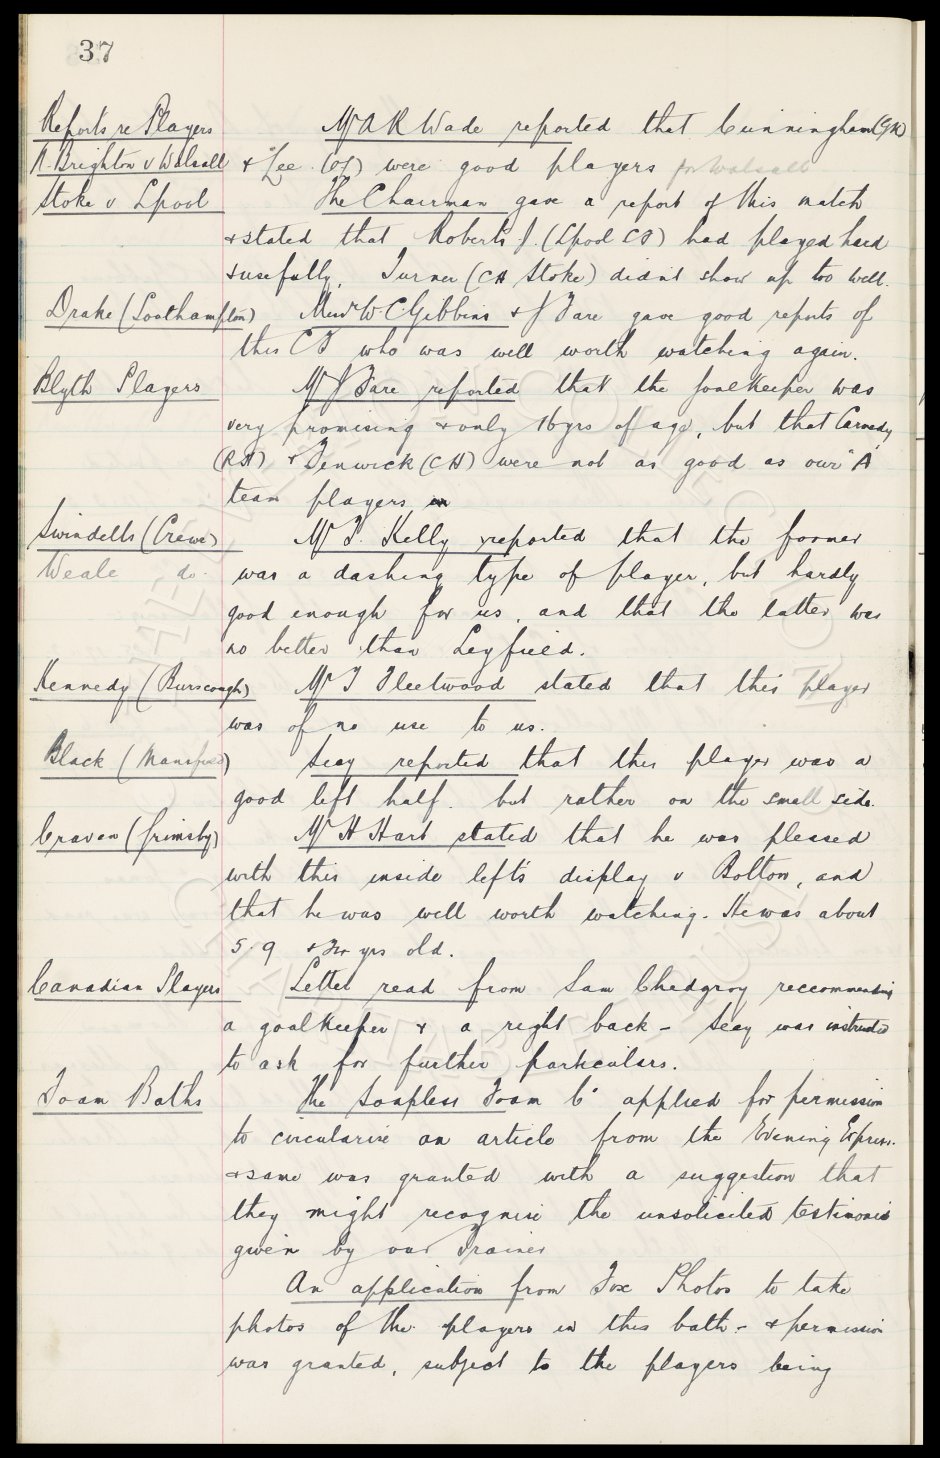 37
Reports re Players
Mr A R Wade reported that Cunningham (GK)
N. Brighton v Walsall & Lee (OL) were good players for Walsall
Stoke v Lpool The Chairman gave a report of this match
& stated that Roberts J. (Lpool CF) had played hard
& usefully, Turner (CH Stoke) didnt show up too well.
Drake (Southampton) Messrs W C Gibbins & J Fare gave good reports of
this CF who was well worth watching again.
Blyth Players Mr J Fare reported that the Goalkeeper was
very promising & only 16 yrs of age, but that
(RH) & Fenwick (CH) were not as good as our "A"
team players
Swindells (Crewe) Mr T. Kelly reported that the former
Weale do. was a dashing type of player, but hardly
good enough for us, and that the latter was
no better than Leyfield.
Kennedy (Burscough) Mr T Fleetwood stated that this player
was of no use to us.
Black (Mansfield) Secy reported that this player was a
good left half. but rather on the small side.
Craven (Grimsby) Mr H Hart stated that he was pleased
with this inside left's display v Bolton, and
that he was well worth watching. He was about
5.9 & yrs old.
Canadian Players Letter read from Sam Chedgzoy reccommending
a goalkeeper & a right back - Secy was instructed
to ask for further particulars.
Foam Baths The Soapless Foam Co applied for permission
to circularise an article from the Evening Express.
& same was granted with a suggestion that
they might recognise the unsolicited testimonial
given by our Trainer
An application from Fox Photos to take
photos of the players in this bath - & permission
was granted, subject to the players being